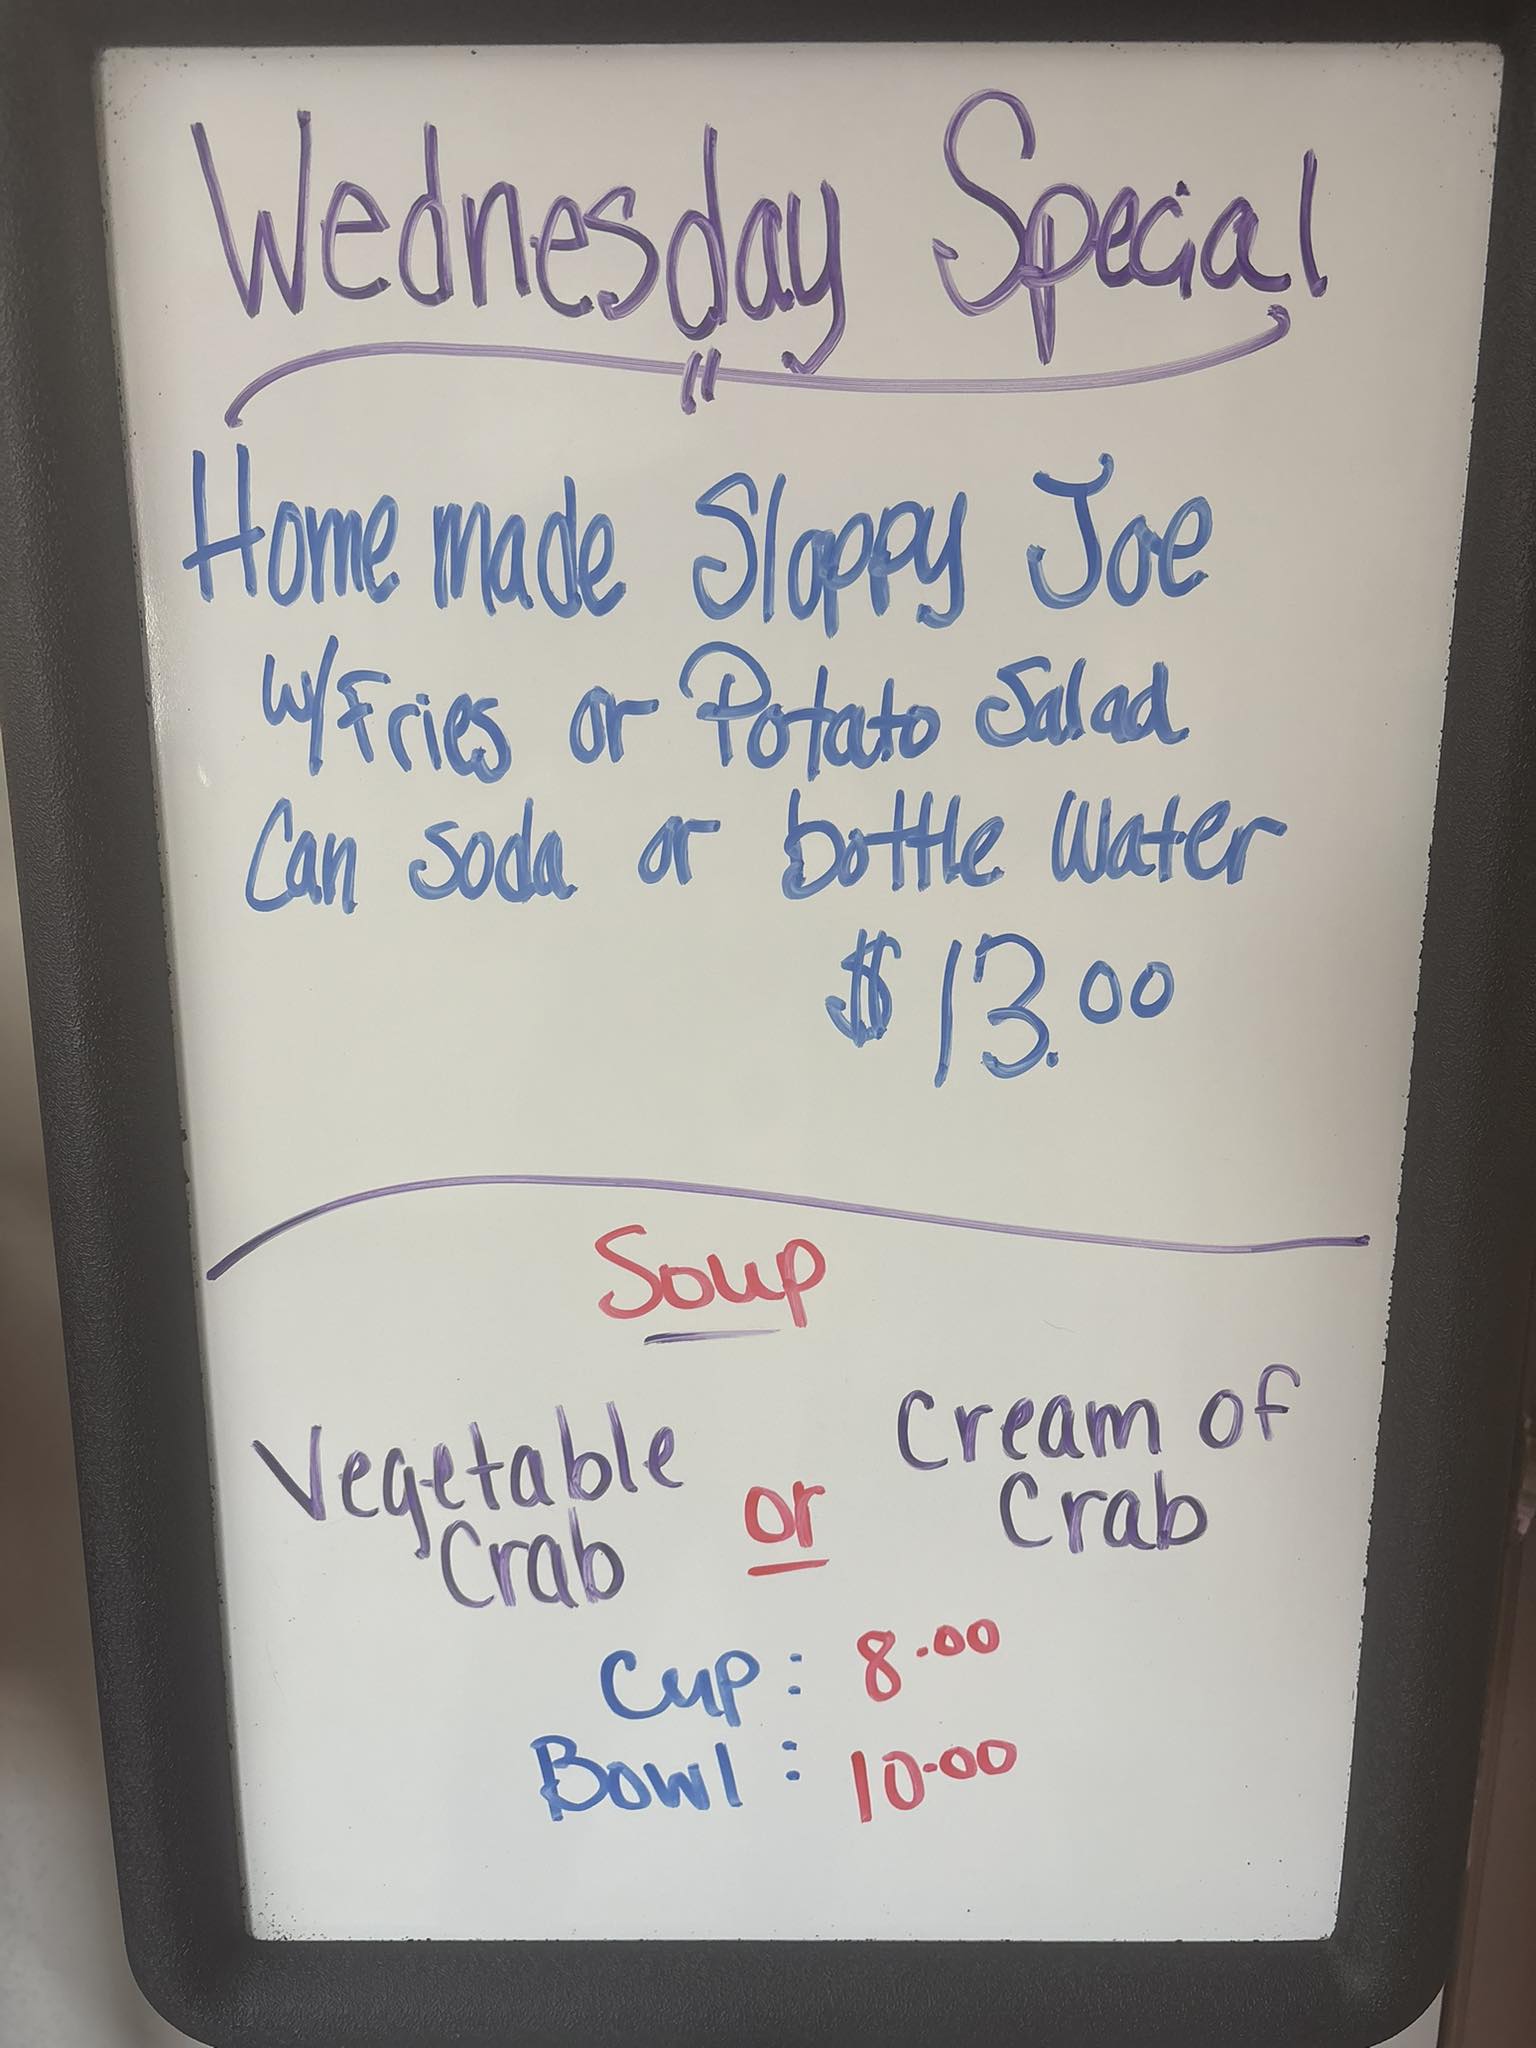 Wednesday Special
Homemade Sloppy Joe
w/Fries or Potato Salad
Can soda or bottle Water
$13.00
Soup
Vegetable Crab or Cream of Crab
Cup: 8.00
Bowl: 10.00